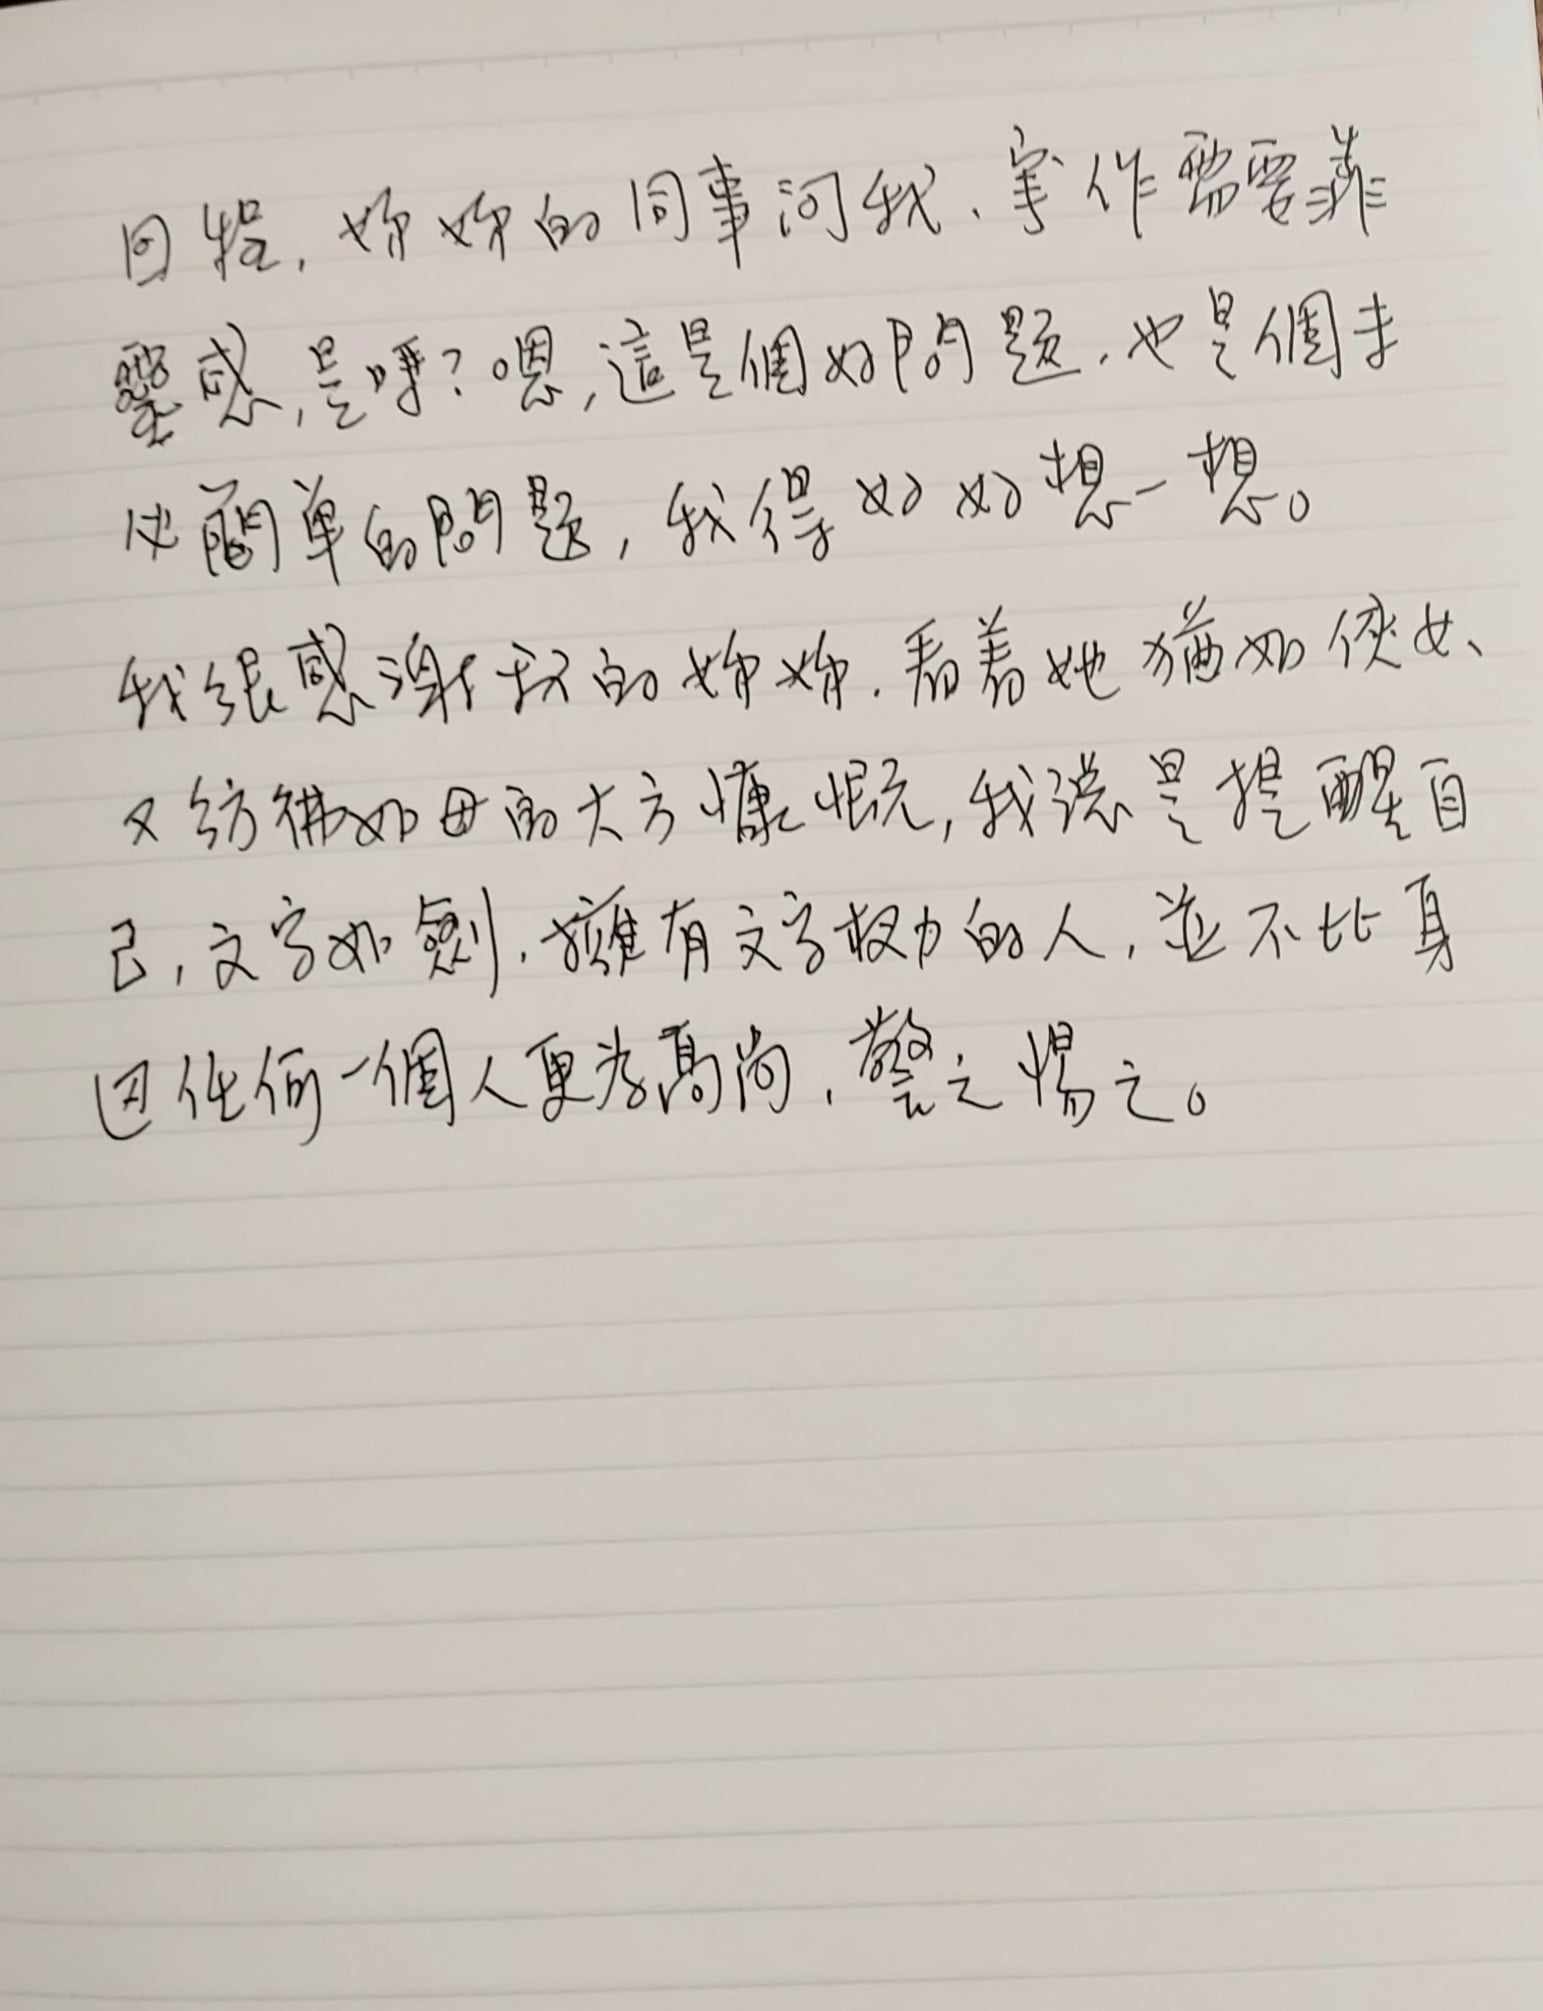 回程，姊姊的同事问我、寫作需要靠
靈感，是嗎？嗯，這是個好問題，也是個未
必簡單的問題，我得好好想一想。
我很感謝我的姊姊，看着她猶如俠女、
又彷彿如母的大方慷慨，我總是提醒自
己，文字如劍，擁有文字权力的人，並不比身
边任何一個人更为高尚，警之惕之。